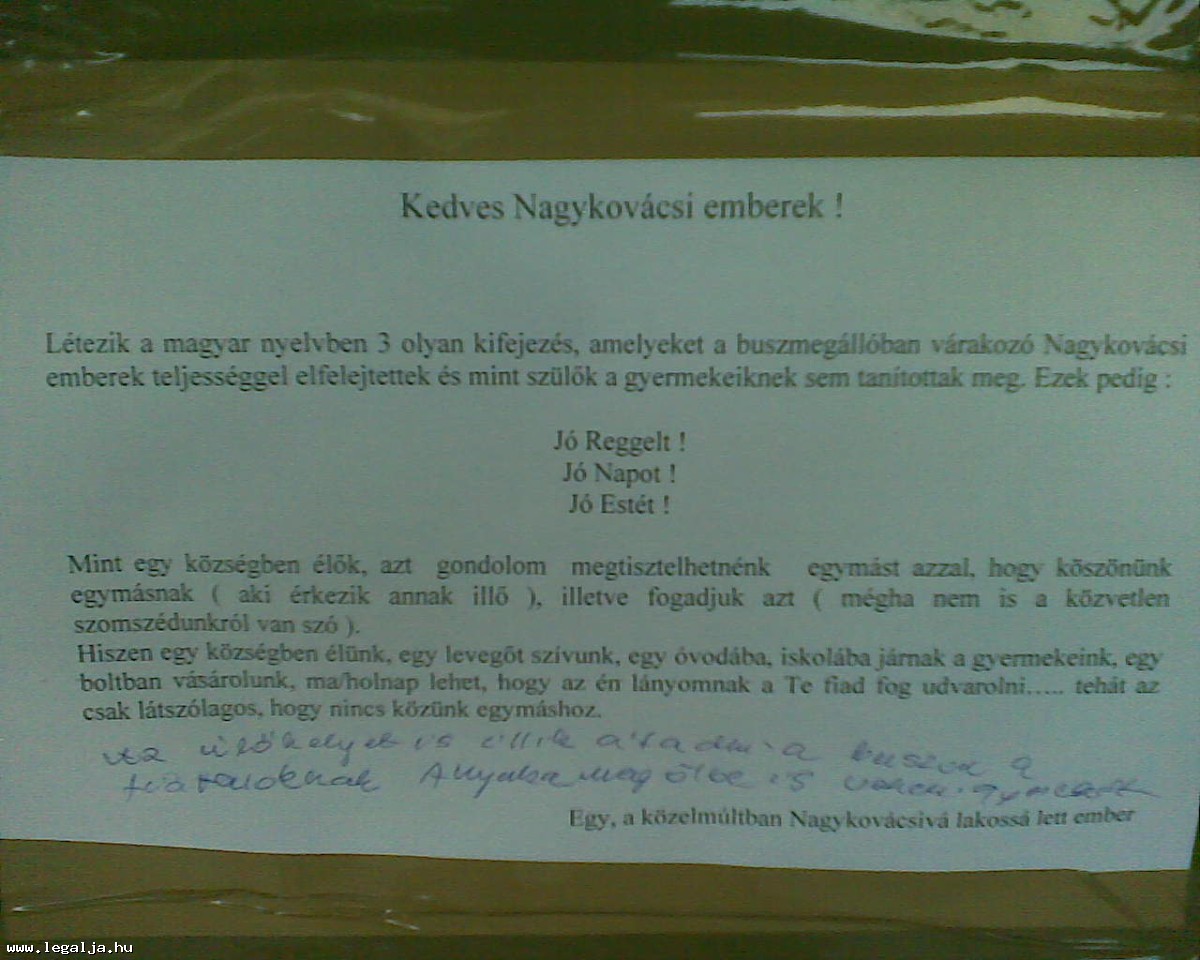 Kedves Nagykovácsi emberek !
Létezik a magyar nyelvben 3 olyan kifejezés, amelyeket a buszmegállóban várakozó Nagykovácsi
emberek teljességgel elfelejtettek és mint szülők a gyermekeiknek sem tanítottak meg. Ezek pedig :
Jó Reggelt !
Jó Napot !
Jó Estét !
Mint egy községben élők, azt gondolom megtisztelhetnénk egymást azzal, hogy köszönünk
egymásnak ( aki érkezik annak illő ), illetve fogadjuk azt ( mégha nem is a közvetlen
szomszédunkról van szó ).
Hiszen egy községben élünk, egy levegőt szívunk, egy óvodába, iskolába járnak a gyermekeink, egy
boltban vásárolunk, ma/holnap lehet, hogy az én lányomnak a Te fiad fog udvarolni..... tehát az
csak látszólagos, hogy nincs közünk egymáshoz.
Az ülőhelyet is illik átadni a buszon a
Egy, a közelmúltban Nagykovácsivá lakossá lett ember
www.legalja.hu